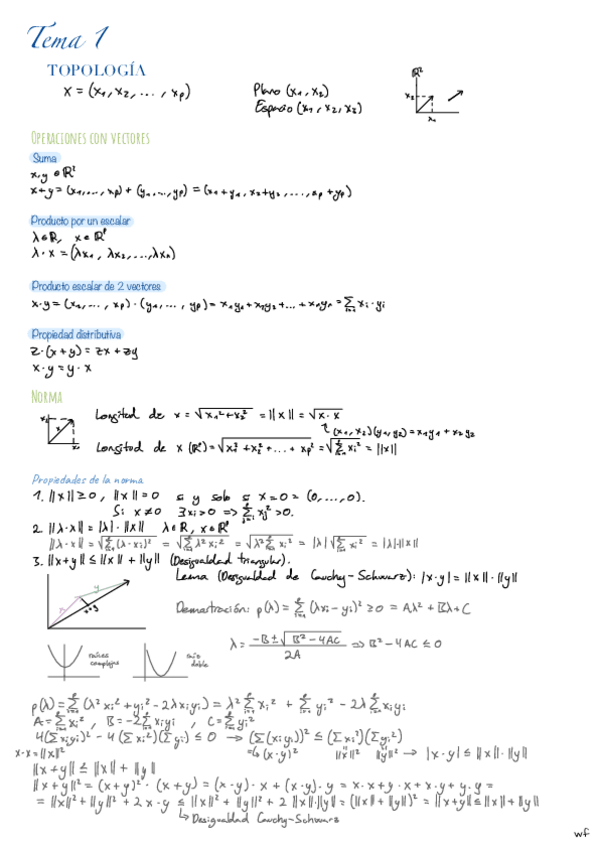 Tema 1
TOPOLOGÍA
x = (x₁, x₂, ..., xₚ)
Plano (x₁, x₂)
Espacio (x₁, x₂, x₃)
ℝ²
x₂
x₁
OPERACIONES CON VECTORES
Suma
x, y ∈ ℝ²
x+y = (x₁, ..., xₚ) + (y₁, ..., yₚ) = (x₁+y₁, x₂+y₂, ..., xₚ+yₚ)
Producto por un escalar
λ∈ℝ, x∈ℝᵖ
λ·x = (λx₁, λx₂, ..., λxₙ)
Producto escalar de 2 vectores
x·y = (x₁, ..., xₚ) · (y₁, ..., yₚ) = x₁y₁ + x₂y₂ + ... + xₚyₚ = Σ xᵢ·yᵢ
Propiedad distributiva
z·(x+y) = zx + zy
x·y = y·x
NORMA
Longitud de x = √x₁²+x₂² = ||x|| = √x·x
(x₁, x₂)(y₁, y₂) = x₁y₁ + x₂y₂
Longitud de x (ℝᵖ) = √x₁²+x₂²+...+xₚ² = √Σxᵢ² = ||x||
Propiedades de la norma
1. ||x|| ≥ 0, ||x|| = 0 si y solo si x = 0 = (0, ..., 0).
Si x ≠ 0 ∃xᵢ > 0 => Σ xⱼ² > 0.
2. ||λ·x|| = |λ| · ||x|| λ∈ℝ, x∈ℝᵖ
||λ·x|| = √Σ(λ·xᵢ)² = √Σλ²xᵢ² = √λ²Σxᵢ² = |λ|√Σxᵢ² = |λ|·||x||
3. ||x+y|| ≤ ||x|| + ||y|| (Desigualdad triangular).
Lema (Desigualdad de Cauchy-Schwarz): |x·y| = ||x||·||y||
x
y
x+y
Demostración: p(λ) = Σ (λxᵢ - yᵢ)² ≥ 0 = Aλ² + Bλ + C
λ = -B ± √B² - 4AC / 2A => B² - 4AC ≤ 0
raíces complejas
raíz doble
p(λ) = Σ(λ²xᵢ² + yᵢ² - 2λxᵢyᵢ) = λ²Σxᵢ² + Σyᵢ² - 2λΣxᵢyᵢ
A = Σxᵢ², B = -2Σxᵢyᵢ, C = Σyᵢ²
4(Σxᵢyᵢ)² - 4(Σxᵢ²)(Σyᵢ²) ≤ 0 → (Σ(xᵢyᵢ))² ≤ (Σxᵢ²)(Σyᵢ²)
x·x = ||x||²
(x·y)² ||x||² ||y||² → |x·y| ≤ ||x||·||y||
||x+y|| ≤ ||x|| + ||y||
||x+y||² = (x+y)² · (x+y) = (x·y)·x + (x·y)·y = x·x + y·x + x·y + y·y =
= ||x||² + ||y||² + 2x·y ≤ ||x||² + ||y||² + 2||x||·||y|| = (||x|| + ||y||)² = ||x+y|| ≤ ||x|| + ||y||
↳ Desigualdad Cauchy-Schwarz
wf